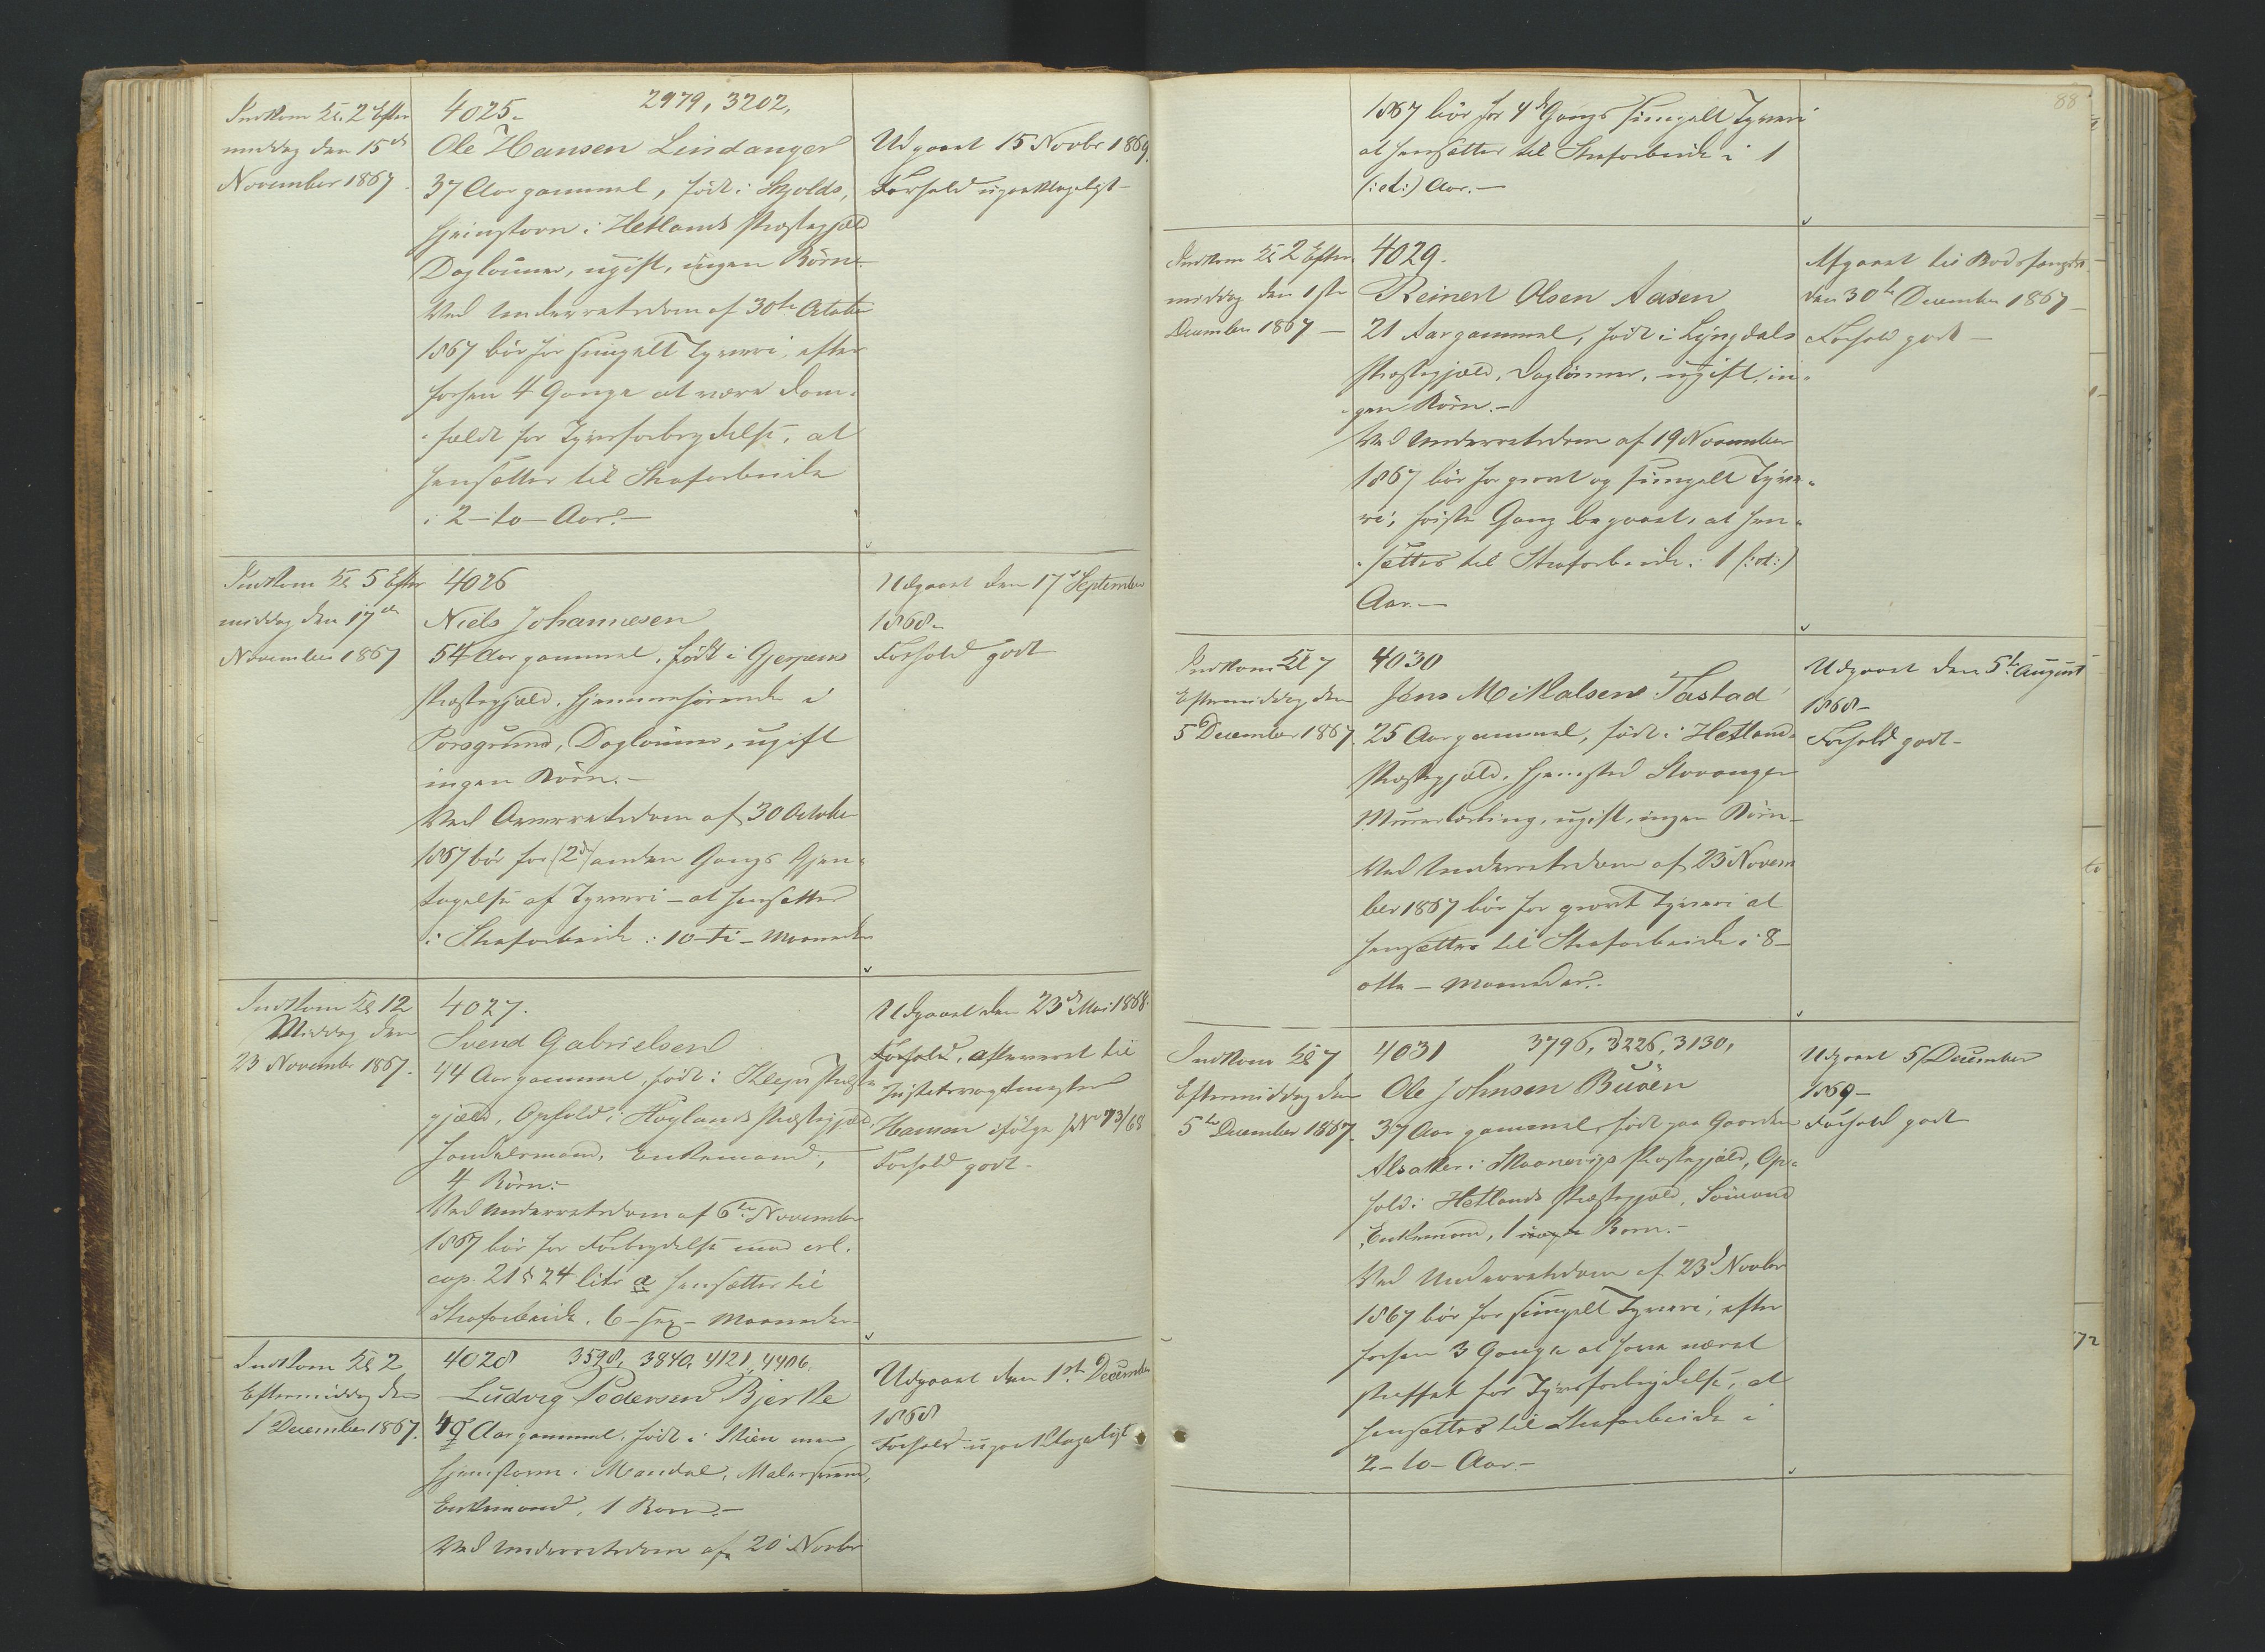 Indkom Kl. 2 Efter
middag den 15de
November 1867.
4025. 2979, 3202,
Ole Hansen Lindanger
37 Aar gammel, født i Skjolds,
hjemstavn i Hetlands Præstegjæld
Daglönner, ugift, ingen Börn.-
Ved Underretsdom af 30te October
1867 bör for simpelt Tyveri, efter
forhen 4 Gange at være dom-
-fældt for Tyvsforbrydelse, at
hensættes til Strafarbeide
i 2 - to - Aar.-
Udgaaet 15 Novbr 1869.
Forhold upaaklageligt-
Indkom Kl 5 Efter
middag den 17de
November 1867
4026
Niels Johannesen
54 Aar gammel, født i Gjerpens
Præstegjæld, hjemmehörende i
Porsgrund, Daglönner, ugift
ingen Börn.-
Ved Overretsdom af 30 October
1867 bör for (2d) anden Gangs Gjen-
tagelse af Tyveri - at hensættes
i Strafarbeide i 10 - ti - Maaneder
Udgaaet den 17d September
1868-
Forhold godt
Indkom Kl 12
Middag den
23 November 1867.
4027.
Svend Gabrielsen
44 Aar gammel, født i Kleps Præste
gjæld, Ophold i Höylands Præstegjæld,
Handelsmand, Enkemand,
4 Börn.-
Ved Underretsdom af 6te November
1867 bör for Forbrydelse mod crl.
cap. 21 § 24 litr a hensættes til
Strafarbeide. 6 - sex - Maaneder-
Udgaaet den 23d Mai 1868.
Forhold, afleveret til
Hansen ifölge J№ 73/68
Forhold godt-
Indkom Kl 2
Eftermiddag den
1 December 1867.
4028 3598, 3840, 4121, 4406.
Ludvig Pedersen Bjerke
49 Aar gammel, født i Skien men
hjemstavn i Mandal, Malersvend,
Enkemand, 1 Barn.-
Ved Underretsdom af 20 Novbr
Udgaaet den 1ste December
1868
Forhold upaaklageligt
88
1867 bör for 4de Gangs simpelt Tyveri
at hensættes til Strafarbeide i 1
(:et:) Aar.-
Indkom Kl 2 Efter
middag den 1ste
December 1867 -
4029.
Reinert Olsen Aasen
21 Aar gammel, født i Lyngdals
Præstegjæld, Daglönner, ugift, in-
-gen Börn.-
Ved Underretsdom af 19 November
1867 bör for grovt og simpelt Tyve-
ri, förste Gang begaaet, at hen-
-sættes til Strafarbeide i 1 (:et:)
Aar.-
Afgaaet til Bodsfængslet
den 30te December 1867 -
Forhold godt -
Indkom Kl 7
Eftermiddag den
5 December 1867.
4030
Jens Mikkalsen Tastad
25 Aar gammel, født i Hetlands
Præstegjæld, hjemsted Stavanger
Murerlærling, ugift, ingen Börn-
Ved Underretsdom af 23 Novem
ber 1867 bör for grovt Tyveri at
hensættes til Strafarbeide i 8-
otte - Maaneder.
Udgaaet den 5te August
1868-
Forhold godt-
Indkom Kl 7
Eftermiddag den
5te December 1867.
4031 3796, 3226, 3130,
Ole Johnsen Buöen
37 Aar gammel, født paa Gaarden
Alsaker i Skaanevigs Præstegjæld, Op-
hold i Hetlands Præstegjæld, Sömand
Enkemand, 1 Barn.-
Ved Underretsdom af 23d Novbr
1867 bör for simpelt Tyveri, efter
forhen 3 Gange at have været
straffet for Tyvsforbrydelse, at
hensættes til Strafarbeide i
2 - to - Aar.-
Udgaaet 5 December
1869-
Forhold godt